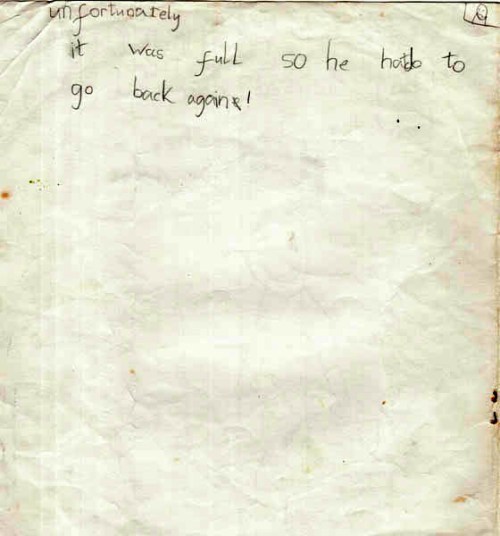 unfortunately
it was full so he had to
go back again!